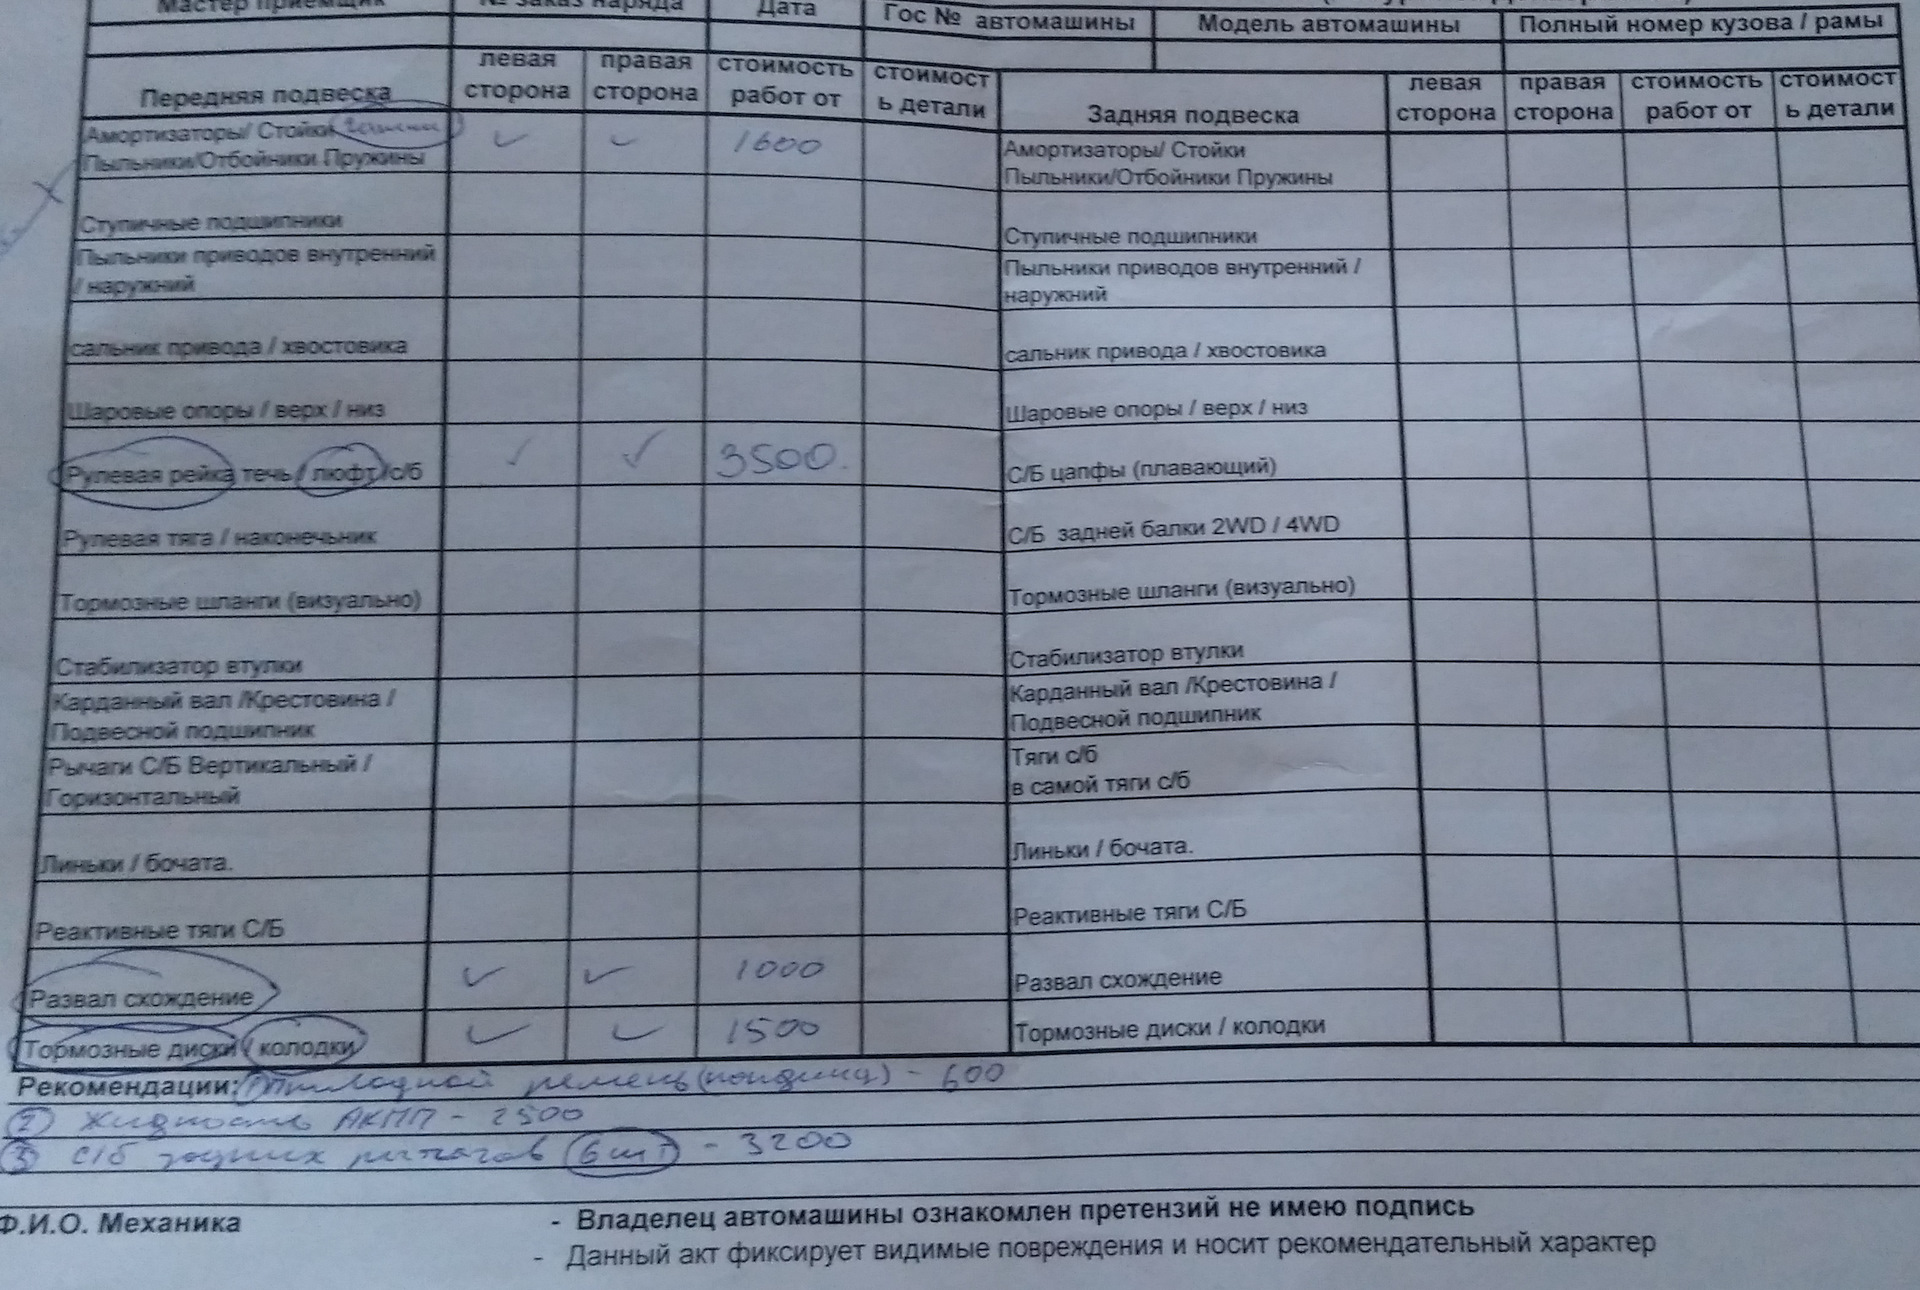 Мастер приемщик № заказ наряда Дата Гос № автомашины Модель автомашины Полный номер кузова / рамы
Передняя подвеска левая сторона правая сторона стоимость работ от стоимост ь детали Задняя подвеска левая сторона правая сторона стоимость работ от стоимост ь детали
Амортизаторы/ Стойки 1600 Амортизаторы/ Стойки
Пыльники/Отбойники Пружины Пыльники/Отбойники Пружины
Ступичные подшипники Ступичные подшипники
Пыльники приводов внутренний Пыльники приводов внутренний /
/ наружний наружний
сальник привода / хвостовика сальник привода / хвостовика
Шаровые опоры / верх / низ Шаровые опоры / верх / низ
Рулевая рейка течь / люфт /с/б 3500. С/Б цапфы (плавающий)
Рулевая тяга / наконечьник С/Б задней балки 2WD / 4WD
Тормозные шланги (визуально) Тормозные шланги (визуально)
Стабилизатор втулки Стабилизатор втулки
Карданный вал /Крестовина / Карданный вал /Крестовина /
Подвесной подшипник Подвесной подшипник
Рычаги С/Б Вертикальный / Тяги с/б
Горизонтальный в самой тяги с/б
Линьки / бочата. Линьки / бочата.
Реактивные тяги С/Б Реактивные тяги С/Б
Развал схождение 1000 Развал схождение
Тормозные диски / колодки 1500 Тормозные диски / колодки
Рекомендации: ① ремень - 600
② Жидкость АКПП - 2500
③ с/б задних рычагов (6 шт) - 3200
Ф.И.О. Механика - Владелец автомашины ознакомлен претензий не имею подпись
- Данный акт фиксирует видимые повреждения и носит рекомендательный характер